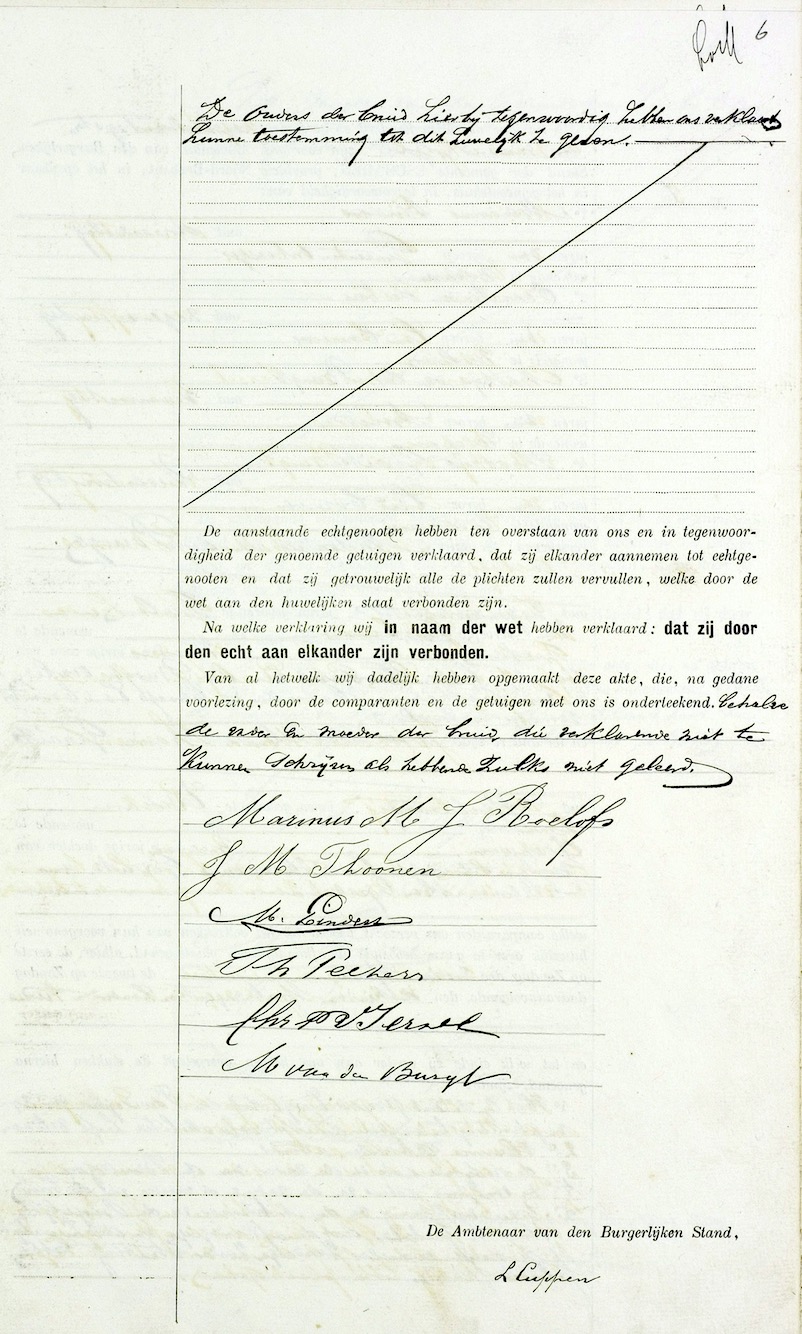 6
De Ouders der bruid hierbij tegenwoordig hebben ons verklaard
hunne toestemming tot dit huwelijk te geven.
De aanstaande echtgenooten hebben ten overstaan van ons en in tegenwoor-
digheid der genoemde getuigen verklaard, dat zij elkander aannemen tot echtge-
nooten en dat zij getrouwelijk alle de plichten zullen vervullen, welke door de
wet aan den huwelijken staat verbonden zijn.
Na welke verklaring wij in naam der wet hebben verklaard: dat zij door
den echt aan elkander zijn verbonden.
Van al hetwelk wij dadelijk hebben opgemaakt deze akte, die, na gedane
voorlezing, door de comparanten en de getuigen met ons is onderteekend. behalve
de vader en moeder der bruid, die verklarende niet te
kunnen schrijven als hebbende zulks niet geleerd.
Marinus M J Roelofs
J M Thoonen
M.
Th Peekers
Chr P V Iersel
M van den Burgt
De Ambtenaar van den Burgerlijken Stand,
L Cuppen